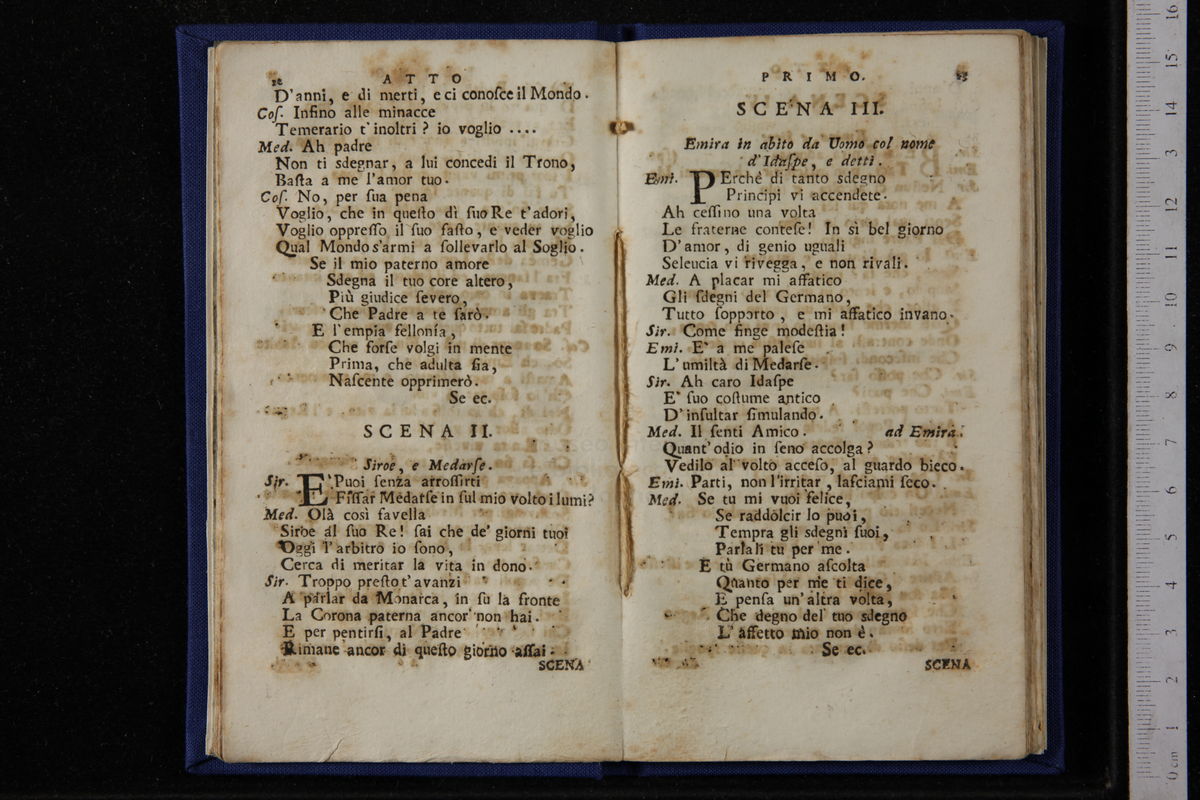 12 ATTO
D'anni, e di merti, e ci conoſce il Mondo.
Coſ. Infino alle minacce
Temerario t'inoltri? io voglio ....
Med. Ah padre
Non ti sdegnar, a lui concedi il Trono,
Baſta a me l'amor tuo.
Coſ. No, per ſua pena
Voglio, che in queſto dì ſuo Re t'adori,
Voglio oppreſſo il ſuo faſto, e veder voglio
Qual Mondo s'armi a ſollevarlo al Soglio.
Se il mio paterno amore
Sdegna il tuo core altero,
Più giudice ſevero,
Che Padre a te ſarò.
E l'empia fellonía,
Che forſe volgi in mente
Prima, che adulta ſia,
Naſcente opprimerò.
Se ec.
SCENA II.
Siroe, e Medarſe.
Sir. E' Puoi ſenza arroſſirti
Fiſſar Medarſe in ſul mio volto i lumi?
Med. Olà così favella
Siroe al ſuo Re! ſai che de' giorni tuoi
Oggi l'arbitro io ſono,
Cerca di meritar la vita in dono.
Sir. Troppo preſto t'avanzi
A parlar da Monarca, in ſu la fronte
La Corona paterna ancor non hai.
E per pentirſi, al Padre
Rimane ancor di queſto giorno aſſai.
SCENA
PRIMO. 13
SCENA III.
Emira in abito da Uomo col nome
d'Idaſpe, e detti.
Emi. PErchè di tanto sdegno
Principi vi accendete.
Ah ceſſino una volta
Le fraterne conteſe! In sì bel giorno
D'amor, di genio uguali
Seleucia vi rivegga, e non rivali.
Med. A placar mi affatico
Gli ſdegni del Germano,
Tutto ſopporto, e mi affatico invano.
Sir. Come finge modeſtia!
Emi. E' a me paleſe
L'umiltà di Medarſe.
Sir. Ah caro Idaſpe
E' ſuo coſtume antico
D'inſultar ſimulando.
Med. Il ſenti Amico. ad Emira.
Quant'odio in ſeno accolga?
Vedilo al volto acceſo, al guardo bieco.
Emi. Parti, non l'irritar, laſciami ſeco.
Med. Se tu mi vuoi felice,
Se raddolcir lo puoi,
Tempra gli sdegni ſuoi,
Parlali tu per me.
E tù Germano aſcolta
Quanto per me ti dice,
E penſa un'altra volta,
Che degno del tuo sdegno
L'affetto mio non è.
Se ec.
SCENA
0 cm 1 2 3 4 5 6 7 8 9 10 11 12 13 14 15 16